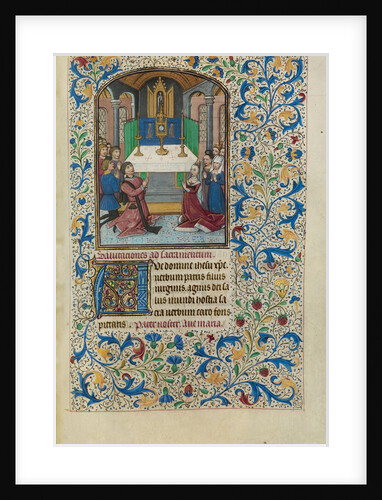 Salutaciones ad sacramentum.
Ave domine ihesu xpe
verbum patris filius
virginis. agnus dei sa
lus mundi hostia sa
cra verbum caro fons
pietatis. Pater noster. Ave maria.